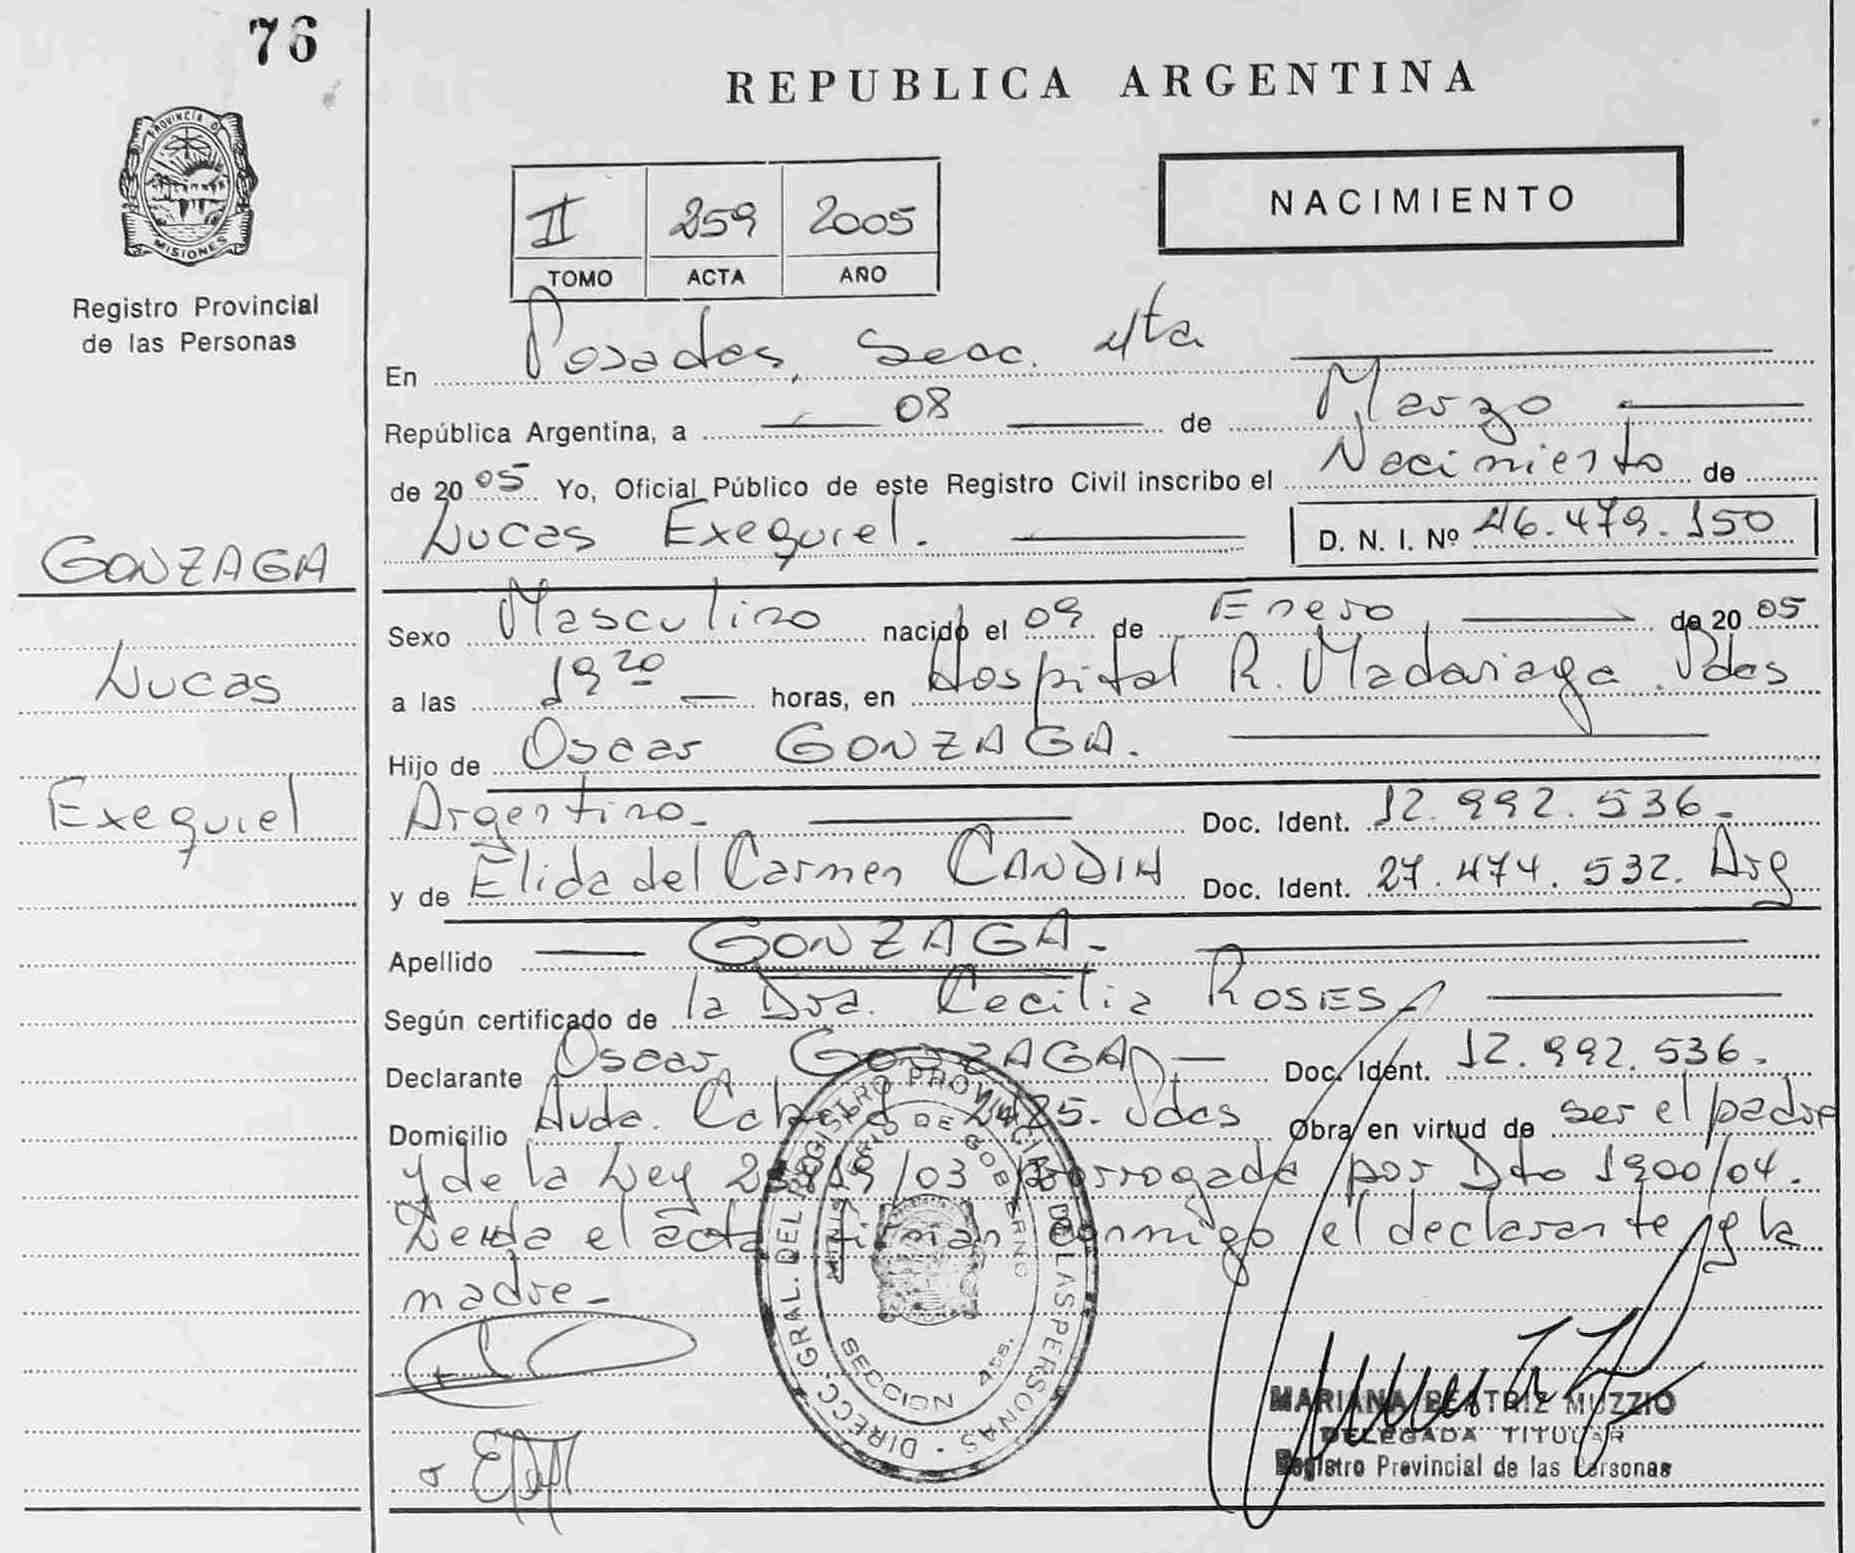 76
REPUBLICA ARGENTINA
PROVINCIA D
MISIONES
Registro Provincial
de las Personas
II 259 2005
TOMO ACTA AÑO
NACIMIENTO
En Posadas, Secc. 4ta
República Argentina, a 08 de Marzo
de 2005 Yo, Oficial Público de este Registro Civil inscribo el Nacimiento de
Lucas Exequiel. D. N. I. Nº 46.479.150
GONZAGA
Lucas
Exequiel
Sexo Masculino nacido el 09 de Enero de 2005
a las 19 20 horas, en Hospital R. Madariaga. Pdas
Hijo de Oscar GONZAGA.
Argentino- Doc. Ident. 12.992.536-
y de Elida del Carmen CANDIA Doc. Ident. 27.474.532. Arg
Apellido GONZAGA-
Según certificado de la Dra. Cecilia ROSES
Declarante Oscar GONZAGA Doc. Ident. 12.992.536-
Domicilio Avda. Pdas Obra en virtud de ser el padre
y de la Ley /03 prorrogada por Dto 1900/04.
Leída el acta firman conmigo el declarante y la
madre-
DIRECC. GRAL. DEL REGISTRO PROVINCIAL DE LAS PERSONAS
MINISTERIO DE GOBIERNO
SECCION 4ta.
MARIANA BEATRIZ MUZZIO
DELEGADA TITULAR
Registro Provincial de las Personas